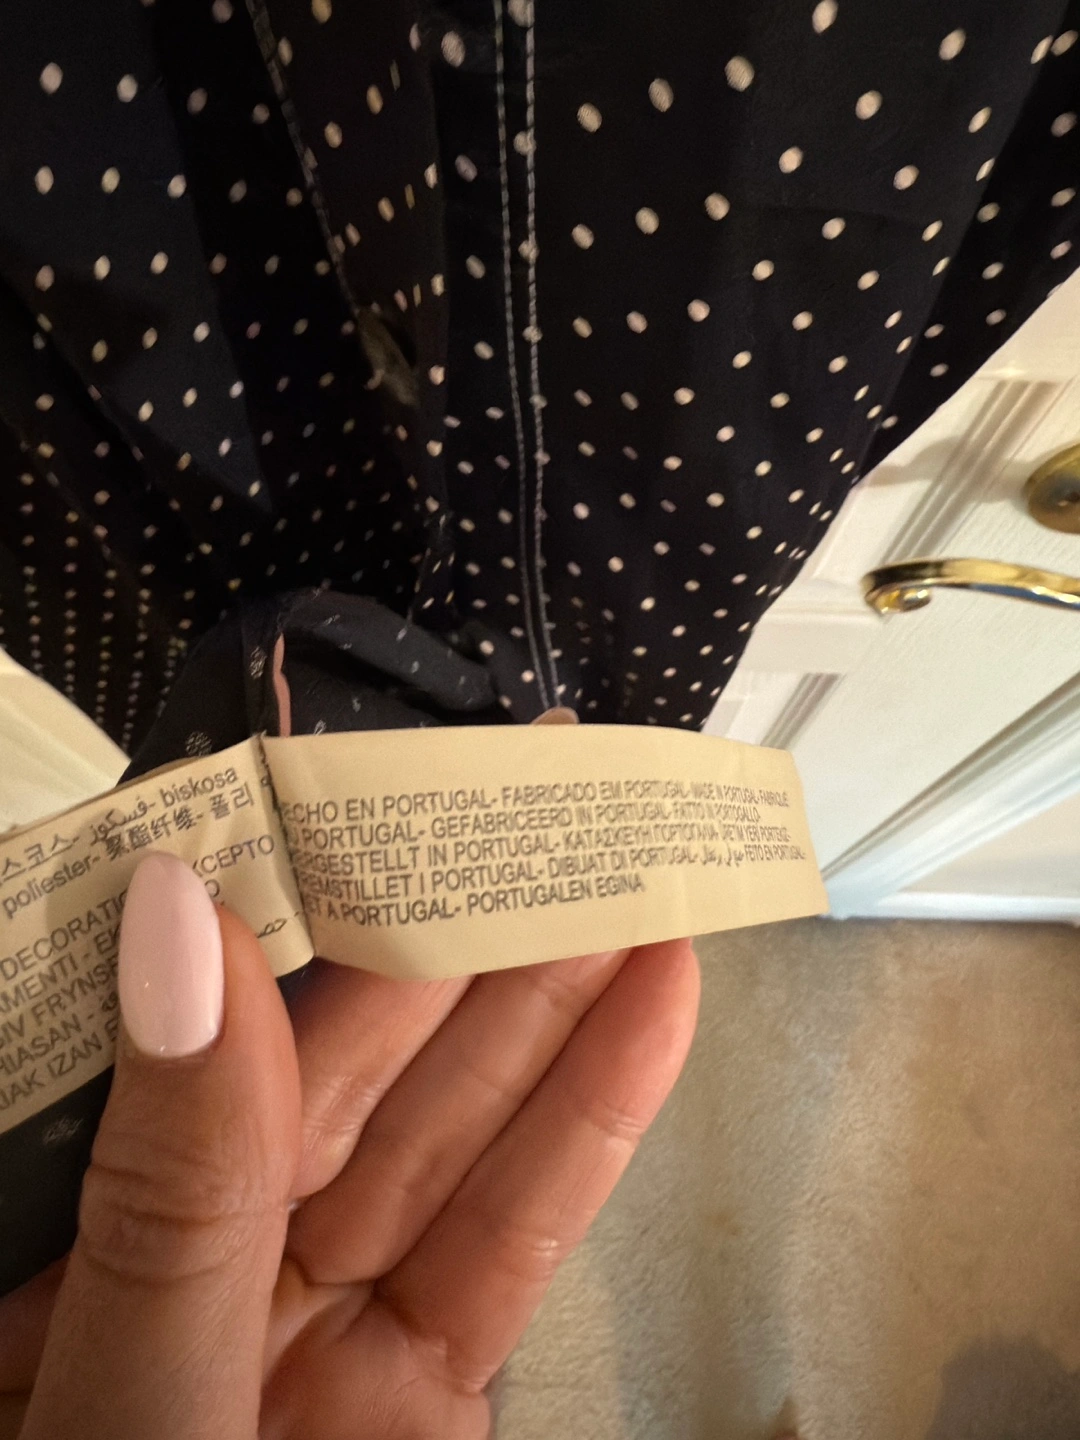 스코스- فسكوز- biskosa
poliester- 聚酯纤维- 폴리
XCEPTO
O
DECORATIO
AMENTI - E
IV FRYNSE
HIASAN -
JAK IZAN E
ECHO EN PORTUGAL- FABRICADO EM PORTUGAL-MADE IN PORTUGAL-FABRIQUÉ
U PORTUGAL- GEFABRICEERD IN PORTUGAL- FATTO IN PORTOGALLO
ERGESTELLT IN PORTUGAL- ΚΑΤΑΣΚΕΥΗ ΠΟΡΤΟΓΑΛΙΑ ÜRETİM YERİ PORTEKİZ-
REMSTILLET I PORTUGAL- DIBUAT DI PORTUGAL- FEITO EN PORTUGAL-
ET A PORTUGAL- PORTUGALEN EGINA